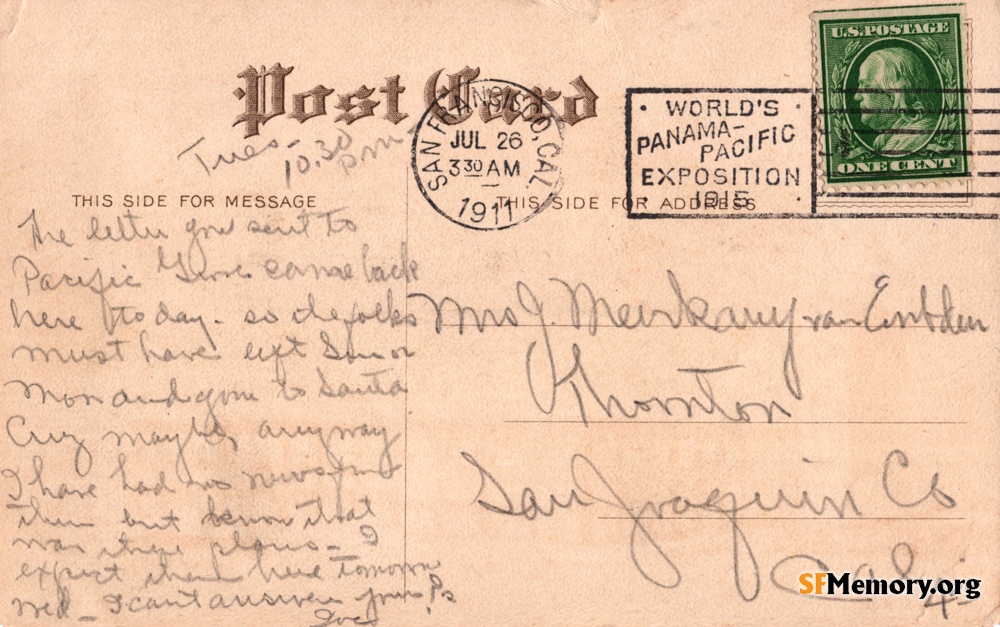 Post Card
U.S. POSTAGE
ONE CENT
SAN FRANCISCO, CAL
JUL 26
3 30 AM
1911
WORLD'S
PANAMA-
PACIFIC
EXPOSITION
1915
Tues-
10.30 pm
THIS SIDE FOR MESSAGE
THIS SIDE FOR ADDRESS
The letter you sent to
Pacific Grove came back
here today. so de folks
must have left Sun or
Mon and gone to Santa
Cruz maybe, anyway
I have had no news from
them but know that
was there plans - I
expect them here tomorrow
Wed - I cant answer your
Mrs J. van Embden
Thornton
San Joaquin Co
Cal.
SFMemory.org